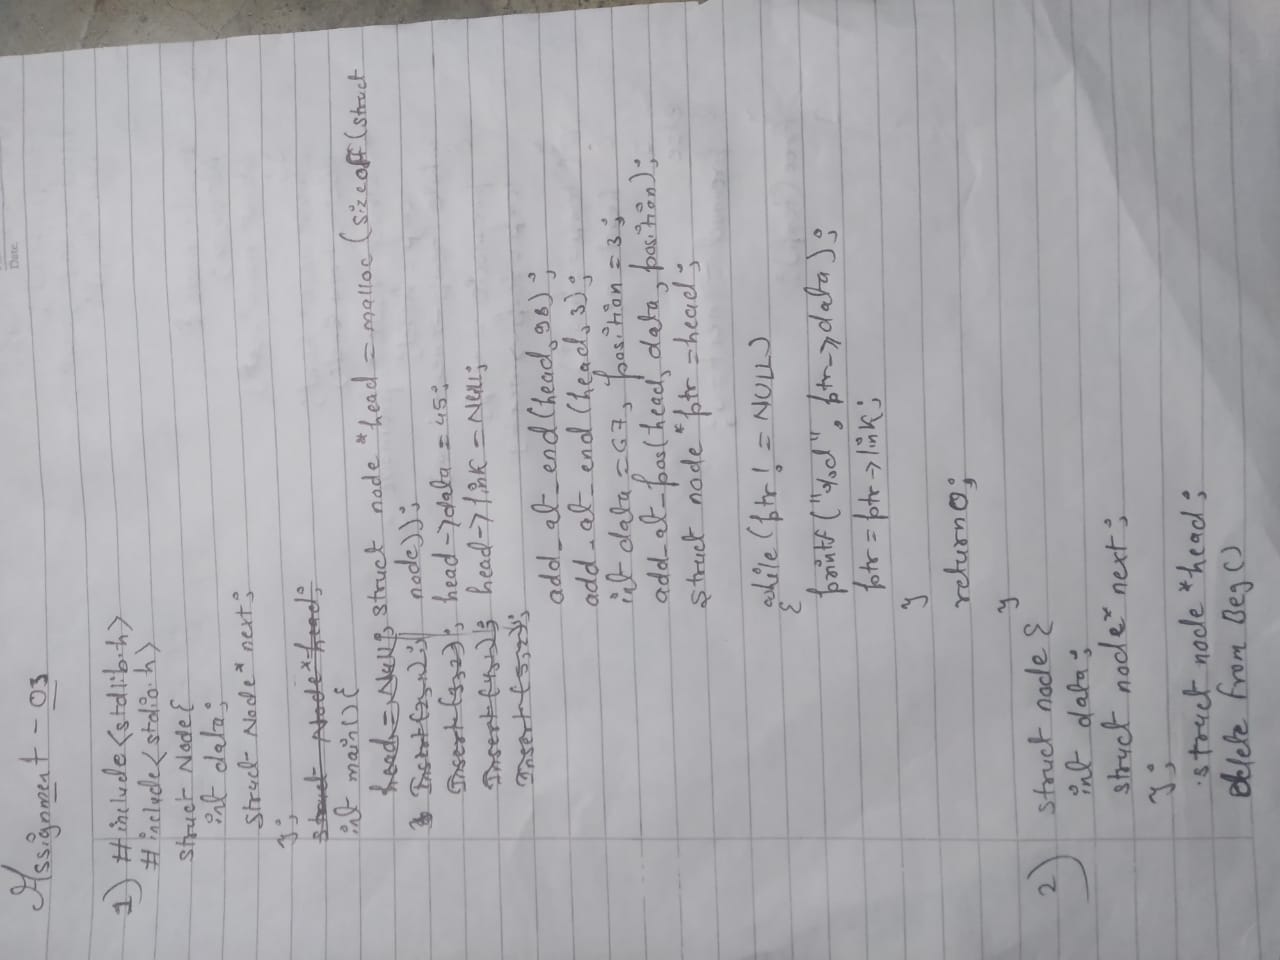 Date
Assignment - 03
1) #include<stdlib.h>
#include<stdio.h>
struct Node{
int data;
struct Node* next;
};
struct Node*head;
int main(){
head=NULL; struct node *head = malloc(sizeoff(struct
node));
Insert(3,2); head->data = 45;
Insert(4,2); head->link = NULL;
Insert(5,2);
add_at_end(head,98);
add_at_end(head,3);
int data = 67, position = 3;
add_at_pos(head, data, position);
struct node *ptr = head;
while(ptr != NULL)
{
printf("%d", ptr->data);
ptr = ptr->link;
}
return 0;
}
2) struct node {
int data;
struct node* next;
};
struct node *head;
delete from Beg()